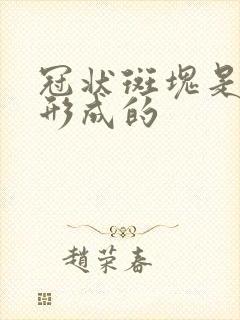 冠状斑塊是
形成的
趙荣春